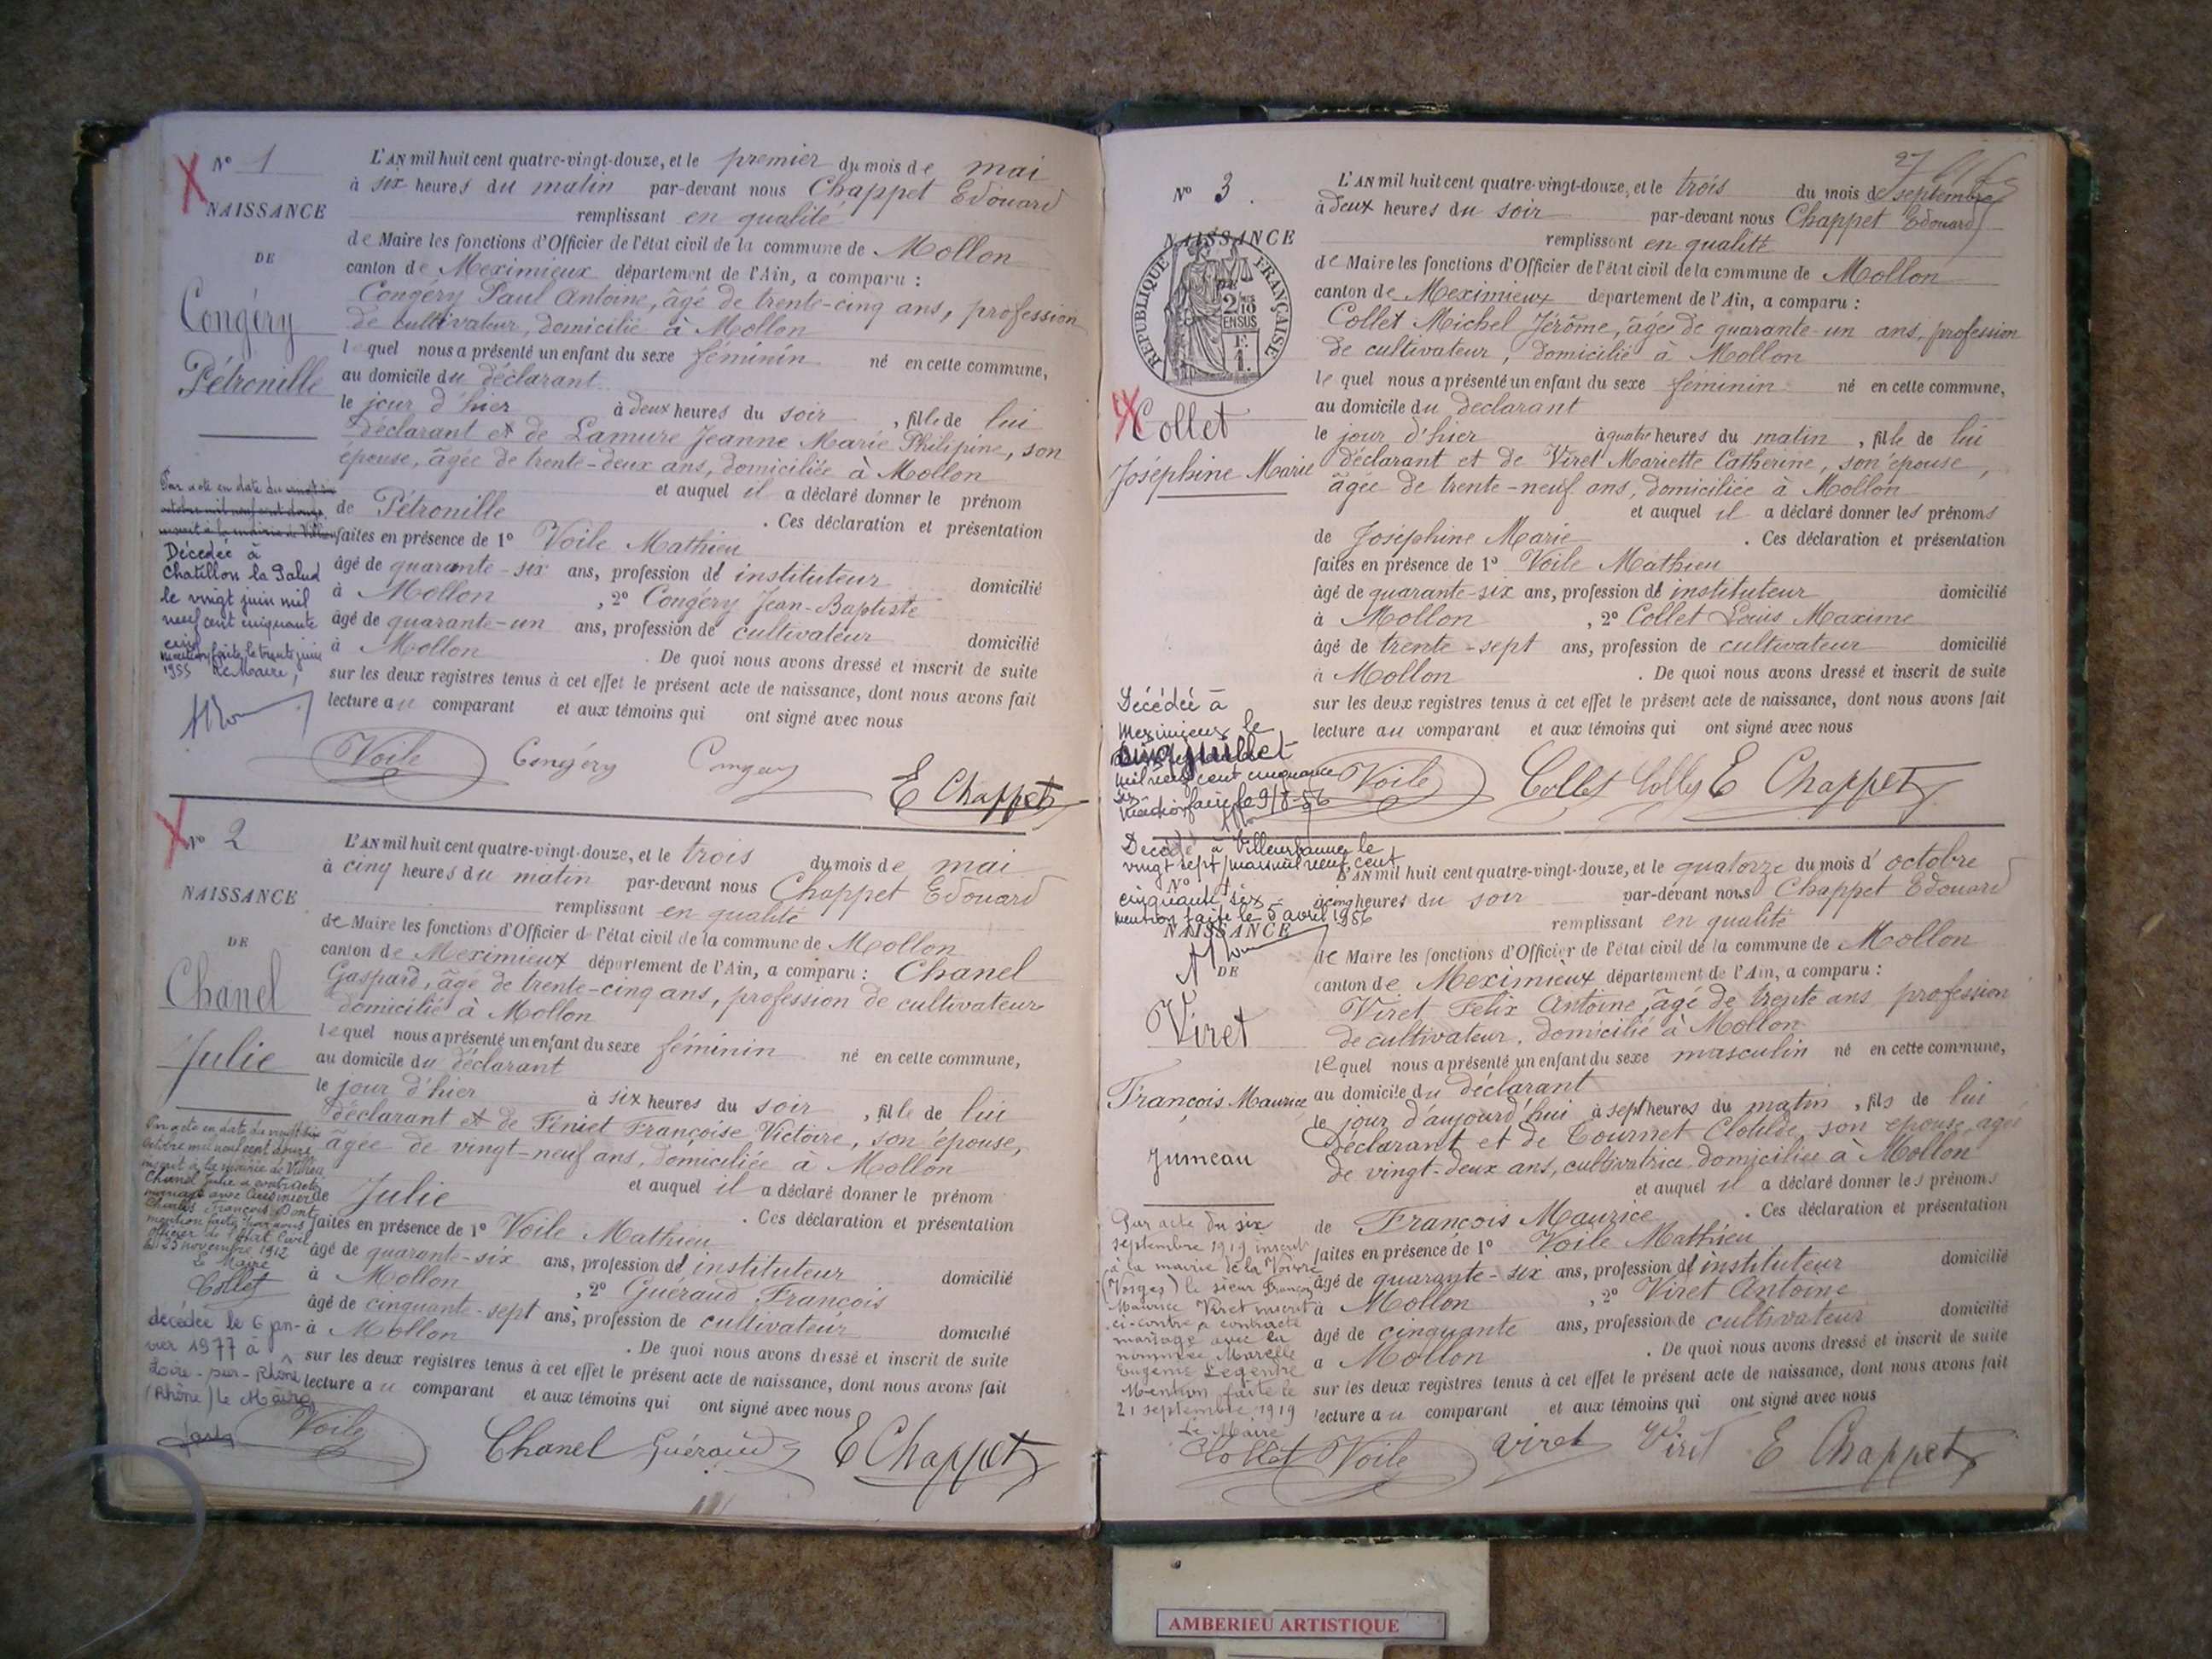 N° 1
NAISSANCE
DE
Congéry
Pétronille
Par acte en date du vingt six
octobre mil neuf cent douze
inscrit à la mairie de
Décédée à
Chatillon la Palud
le vingt juin mil
neuf cent cinquante
cinq
mention faite le trente juin
1955 Le Maire,
L'AN mil huit cent quatre-vingt-douze, et le premier du mois de mai
à six heures du matin par-devant nous Chappet Edouard
remplissant en qualité
de Maire les fonctions d'Officier de l'état civil de la commune de Mollon
canton de Meximieux département de l'Ain, a comparu :
Congéry Paul Antoine, âgé de trente-cinq ans, profession
de cultivateur, domicilié à Mollon
lequel nous a présenté un enfant du sexe féminin né en cette commune,
au domicile du déclarant
le jour d'hier à deux heures du soir, fille de lui
déclarant et de Lamure Jeanne Marie Philipine, son
épouse, âgée de trente-deux ans, domiciliée à Mollon
et auquel il a déclaré donner le prénom
de Pétronille . Ces déclaration et présentation
faites en présence de 1° Voile Mathieu
âgé de quarante-six ans, profession d' instituteur domicilié
à Mollon , 2° Congéry Jean-Baptiste
âgé de quarante-un ans, profession de cultivateur domicilié
à Mollon . De quoi nous avons dressé et inscrit de suite
sur les deux registres tenus à cet effet le présent acte de naissance, dont nous avons fait
lecture au comparant et aux témoins qui ont signé avec nous
Voile Congéry Congéry E Chappet
N° 2
NAISSANCE
DE
Chanel
Julie
Par acte en date du vingt six
octobre mil neuf cent douze
inscrit à la mairie de
Chanel Julie a contracté
mariage avec
Charles François
mention faite par nous
officier de l'état civil
le 25 novembre 1912
Le Maire
Collet
décédée le 6 jan-
vier 1977 à
Loire-sur-Rhône
(Rhône) le Maire
L'AN mil huit cent quatre-vingt-douze, et le trois du mois de mai
à cinq heures du matin par-devant nous Chappet Edouard
remplissant en qualité
de Maire les fonctions d'Officier de l'état civil de la commune de Mollon
canton de Meximieux département de l'Ain, a comparu : Chanel
Gaspard, âgé de trente-cinq ans, profession de cultivateur
domicilié à Mollon
lequel nous a présenté un enfant du sexe féminin né en cette commune,
au domicile du déclarant
le jour d'hier à six heures du soir , fille de lui
déclarant et de Féniet Françoise Victoire, son épouse,
âgée de vingt-neuf ans, domiciliée à Mollon
et auquel il a déclaré donner le prénom
de Julie . Ces déclaration et présentation
faites en présence de 1° Voile Mathieu
âgé de quarante-six ans, profession d' instituteur domicilié
à Mollon , 2° Guéraud François
âgé de cinquante-sept ans, profession de cultivateur domicilié
à Mollon . De quoi nous avons dressé et inscrit de suite
sur les deux registres tenus à cet effet le présent acte de naissance, dont nous avons fait
lecture au comparant et aux témoins qui ont signé avec nous
Voile Chanel Guéraud E Chappet
27
N° 3.
NAISSANCE
RÉPUBLIQUE FRANÇAISE
DE
2/10 EN SUS
1 F.
Collet
Joséphine Marie
Décédée à
Meximieux le
cinq juillet
mil neuf cent cinquante
six
Mention faite le 9/8-56
L'AN mil huit cent quatre-vingt-douze, et le trois du mois de septembre
à deux heures du soir par-devant nous Chappet Edouard
remplissant en qualité
de Maire les fonctions d'Officier de l'état civil de la commune de Mollon
canton de Meximieux département de l'Ain, a comparu :
Collet Michel Jérôme, âgée de quarante-un ans, profession
de cultivateur, domicilié à Mollon
lequel nous a présenté un enfant du sexe féminin né en cette commune,
au domicile du déclarant
le jour d'hier à quatre heures du matin , fille de lui
déclarant et de Viret Mariette Catherine, son épouse,
âgée de trente-neuf ans, domiciliée à Mollon
et auquel il a déclaré donner les prénoms
de Joséphine Marie . Ces déclaration et présentation
faites en présence de 1° Voile Mathieu
âgé de quarante-six ans, profession d' instituteur domicilié
à Mollon , 2° Collet Louis Maxime
âgé de trente-sept ans, profession de cultivateur domicilié
à Mollon . De quoi nous avons dressé et inscrit de suite
sur les deux registres tenus à cet effet le présent acte de naissance, dont nous avons fait
lecture au comparant et aux témoins qui ont signé avec nous
Voile Collet Collet E Chappet
Décédé à Villeurbanne le
vingt sept mars mil neuf cent
N° 4
cinquante six -
mention faite le 5 avril 1956
NAISSANCE
DE
Viret
François Maurice
Jumeau
Par acte du six
septembre 1919 inscrit
à la mairie de la Voivre
(Vosges) le sieur François
Maurice Viret inscrit
ci-contre a contracté
mariage avec la
nommée Marcelle
Eugénie Legendre
Mention faite le
21 septembre 1919
Le Maire
Collet
L'AN mil huit cent quatre-vingt-douze, et le quatorze du mois d' octobre
à cinq heures du soir par-devant nous Chappet Edouard
remplissant en qualité
de Maire les fonctions d'Officier de l'état civil de la commune de Mollon
canton de Meximieux département de l'Ain, a comparu :
Viret Felix Antoine, âgé de trente ans, profession
de cultivateur, domicilié à Mollon
lequel nous a présenté un enfant du sexe masculin né en cette commune,
au domicile du déclarant
le jour d'aujourd'hui à sept heures du matin , fils de lui
déclarant et de Tournet Clotilde, son épouse, âgée
de vingt-deux ans, cultivatrice, domiciliée à Mollon
et auquel il a déclaré donner les prénoms
de François Maurice . Ces déclaration et présentation
faites en présence de 1° Voile Mathieu
âgé de quarante-six ans, profession d' instituteur domicilié
à Mollon , 2° Viret Antoine
âgé de cinquante ans, profession de cultivateur domicilié
à Mollon . De quoi nous avons dressé et inscrit de suite
sur les deux registres tenus à cet effet le présent acte de naissance, dont nous avons fait
lecture au comparant et aux témoins qui ont signé avec nous
Voile Viret Viret E Chappet
AMBERIEU ARTISTIQUE